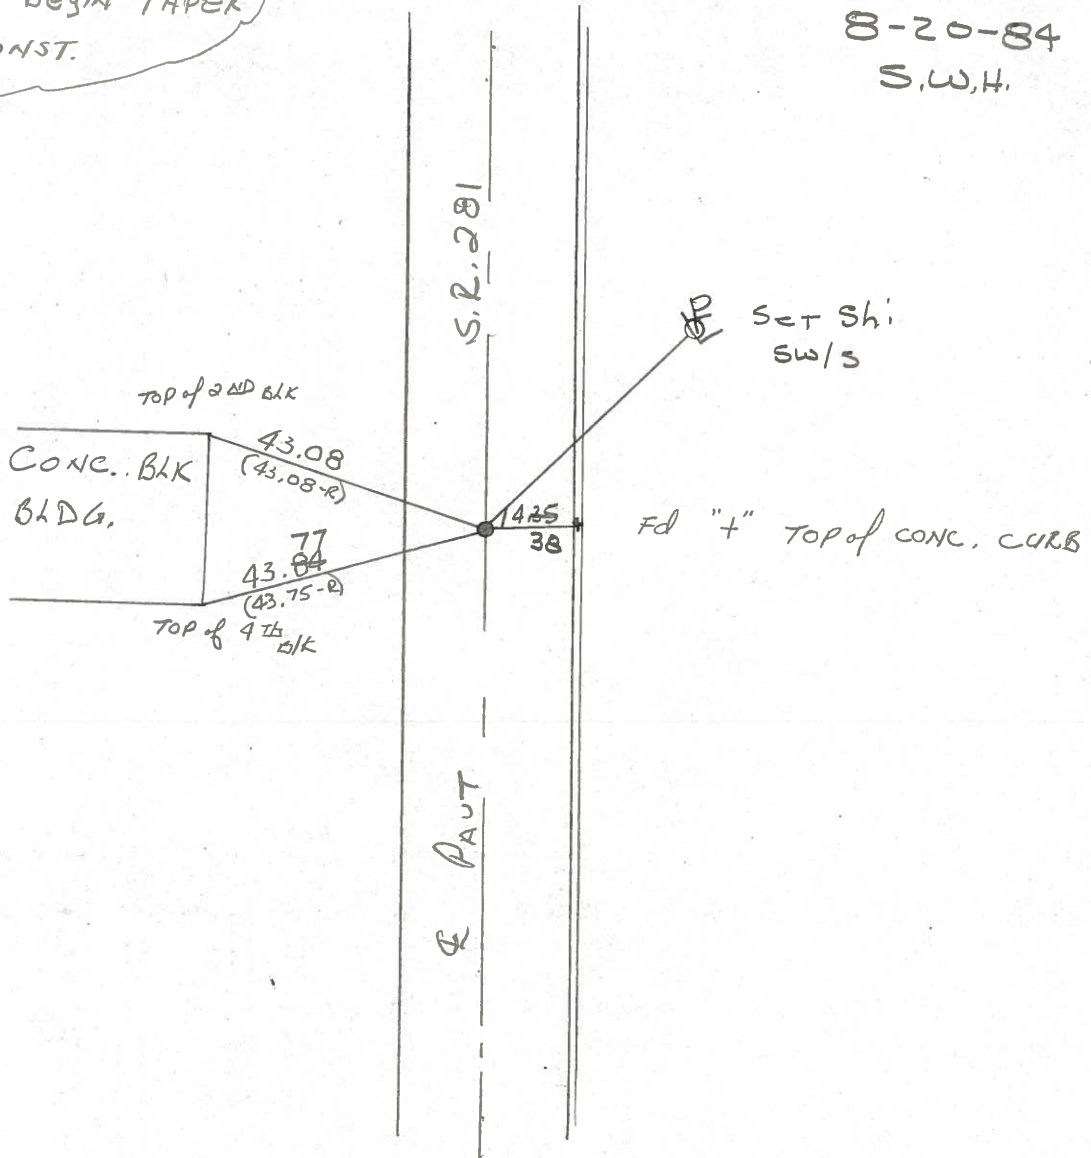 BEGIN TAPER
ONST.
8-20-84
S.W.H.
S.R. 281
Set Shi
SW/S
TOP of 2ND BLK
43.08
(43.08-R)
CONC. BLK
BLDG.
77
43.84
(43.75-R)
TOP of 4Th
Blk
14.25
38
Fd "+" TOP of CONC. CURB
℄ PAVT